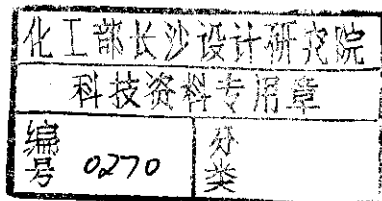 化工部长沙设计研究院
科技资料专用章
编号 0270 分类